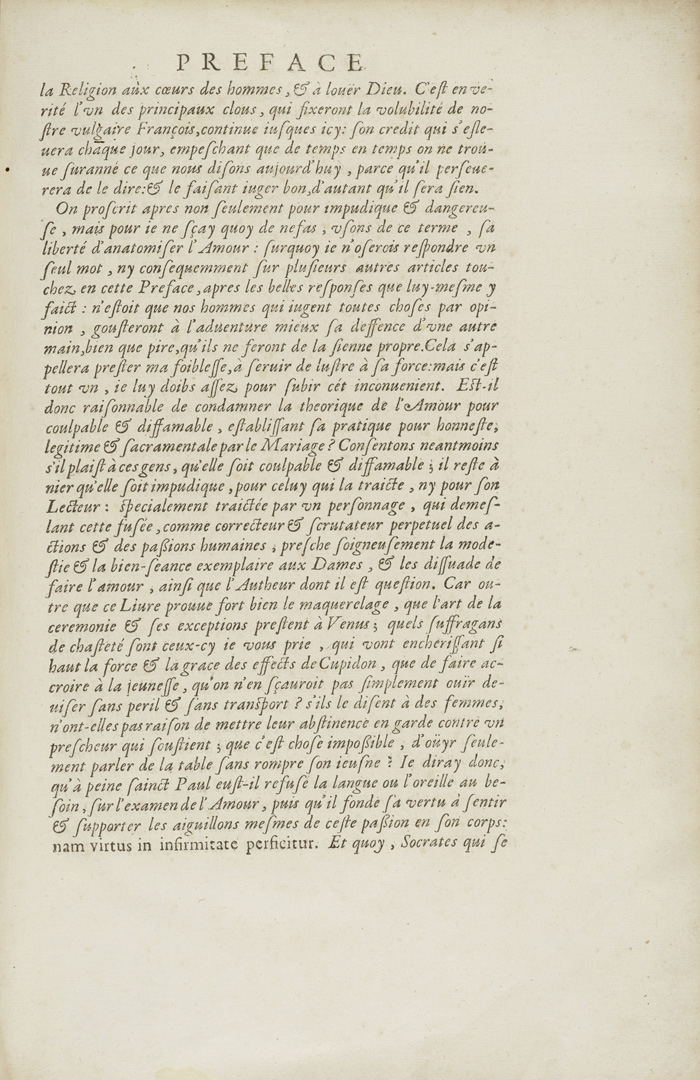 PREFACE
la Religion aux cœurs des hommes, & à louër Dieu. C'eſt en ve-
rité l'vn des principaux clous, qui fixeront la volubilité de no-
ſtre vulgaire François, continue iuſques icy: ſon credit qui s'eſle-
uera chaque jour, empeſchant que de temps en temps on ne trou-
ue ſuranné ce que nous diſons aujourd'huy, parce qu'il perſeue-
rera de le dire: & le faiſant iuger bon, d'autant qu'il ſera ſien.
On proſcrit apres non ſeulement pour impudique & dangereu-
ſe, mais pour ie ne ſçay quoy de nefas, vſons de ce terme, ſa
liberté d'anatomiſer l'Amour: ſurquoy ie n'oſerois reſpondre vn
ſeul mot, ny conſequemment ſur pluſieurs autres articles tou-
chez en cette Preface, apres les belles reſponſes que luy-meſme y
faict: n'eſtoit que nos hommes qui iugent toutes choſes par opi-
nion, gouſteront à l'aduenture mieux ſa deffence d'vne autre
main, bien que pire, qu'ils ne feront de la ſienne propre. Cela s'ap-
pellera preſter ma foibleſſe, à ſeruir de luſtre à ſa force: mais c'eſt
tout vn, ie luy doibs aſſez pour ſubir cét inconuenient. Eſt-il
donc raiſonnable de condamner la theorique de l'Amour pour
coulpable & diffamable, eſtabliſſant ſa pratique pour honneſte,
legitime & ſacramentale par le Mariage? Conſentons neantmoins
s'il plaiſt à ces gens, qu'elle ſoit coulpable & diffamable; il reſte à
nier qu'elle ſoit impudique, pour celuy qui la traicte, ny pour ſon
Lecteur: ſpecialement traictée par vn perſonnage, qui demeſ-
lant cette fuſée, comme correcteur & ſcrutateur perpetuel des a-
ctions & des paßions humaines, preſche ſoigneuſement la mode-
ſtie & la bien-ſeance exemplaire aux Dames, & les diſſuade de
faire l'amour, ainſi que l'Autheur dont il eſt queſtion. Car ou-
tre que ce Liure prouue fort bien le maquerelage, que l'art de la
ceremonie & ſes exceptions preſtent à Venus; quels ſuffragans
de chaſteté ſont ceux-cy ie vous prie, qui vont encheriſſant ſi
haut la force & la grace des effects de Cupidon, que de faire ac-
croire à la jeuneſſe, qu'on n'en ſçauroit pas ſimplement ouïr de-
uiſer ſans peril & ſans tranſport? s'ils le diſent à des femmes,
n'ont-elles pas raiſon de mettre leur abſtinence en garde contre vn
preſcheur qui ſouſtient; que c'eſt choſe impoßible, d'oüyr ſeule-
ment parler de la table ſans rompre ſon ieuſne? Ie diray donc,
qu'à peine ſainct Paul euſt-il refuſé la langue ou l'oreille au be-
ſoin, ſur l'examen de l'Amour, puis qu'il fonde ſa vertu à ſentir
& ſupporter les aiguillons meſmes de ceſte paßion en ſon corps:
nam virtus in infirmitate perficitur. Et quoy, Socrates qui ſe